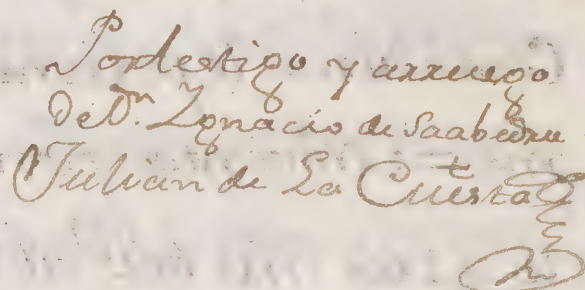 Por testigo y arruego
De Dn. Ygnacio de Saabedra
Julian de La Cuesta